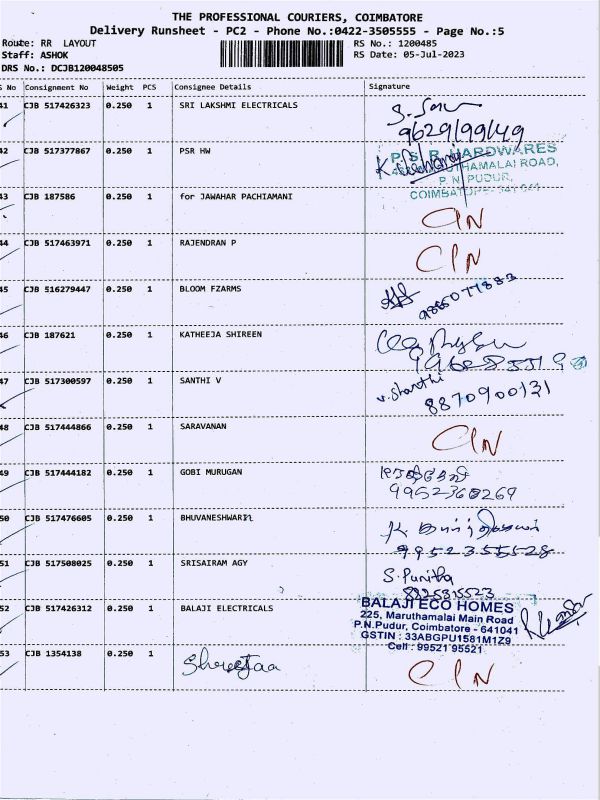 THE PROFESSIONAL COURIERS, COIMBATORE
Delivery Runsheet - PC2 - Phone No.:0422-3505555 - Page No.:5
Route: RR LAYOUT
RS No.: 1200485
Staff: ASHOK
RS Date: 05-Jul-2023
DRS No.: DCJB120048505
S No Consignment No Weight PCS Consignee Details Signature
41 CJB 517426323 0.250 1 SRI LAKSHMI ELECTRICALS
42 CJB 517377867 0.250 1 PSR HW
HARDWARES
MARUTHAMALAI ROAD,
P.N. PUDUR,
43 CJB 187586 0.250 1 for JAWAHAR PACHIAMANI
44 CJB 517463971 0.250 1 RAJENDRAN P
45 CJB 516279447 0.250 1 BLOOM FZARMS
46 CJB 187621 0.250 1 KATHEEJA SHIREEN
47 CJB 517300597 0.250 1 SANTHI V
V. Shanthi
8870900131
48 CJB 517444866 0.250 1 SARAVANAN
49 CJB 517444182 0.250 1 GOBI MURUGAN
9952360269
50 CJB 517476605 0.250 1 BHUVANESHWARI
9952355528
51 CJB 517508025 0.250 1 SRISAIRAM AGY
S. Punitha
52 CJB 517426312 0.250 1 BALAJI ELECTRICALS
BALAJI ECO HOMES
225, Maruthamalai Main Road
P.N.Pudur, Coimbatore - 641041
GSTIN : 33ABGPU1581M1Z9
Cell : 99521 95521
53 CJB 1354138 0.250 1